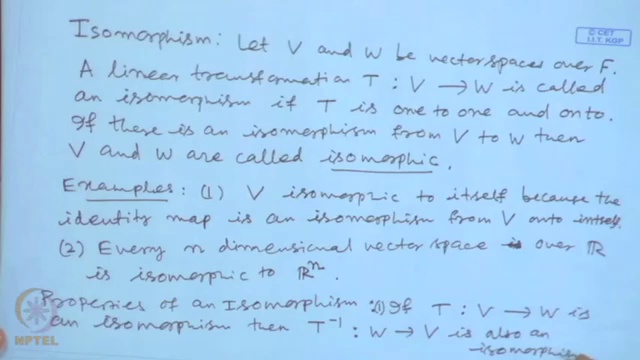 © CET
I.I.T. KGP
Isomorphism: Let V and W be vector spaces over F.
A linear transformation T : V → W is called
an isomorphism if T is one to one and onto.
If there is an isomorphism from V to W then
V and W are called isomorphic.
Examples: (1) V isomorphic to itself because the
identity map is an isomorphism from V onto itself.
(2) Every n dimensional vector space over ℝ
is isomorphic to ℝⁿ.
Properties of an Isomorphism: (1) If T : V → W is
an isomorphism then T⁻¹ : W → V is also an
isomorphism
NPTEL